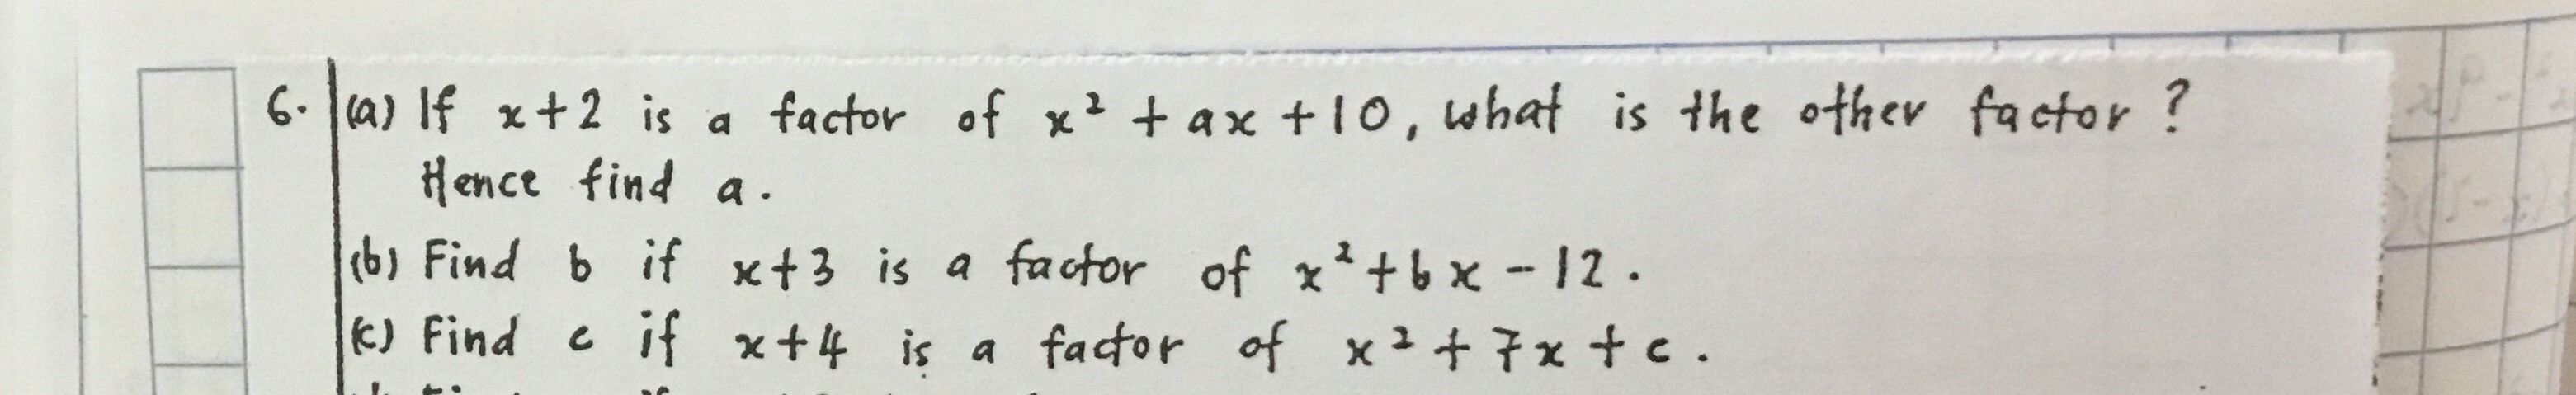 6. (a) If x+2 is a factor of x² + ax + 10, what is the other factor?
Hence find a.
(b) Find b if x+3 is a factor of x² + bx - 12.
(c) Find c if x+4 is a factor of x² + 7x + c.